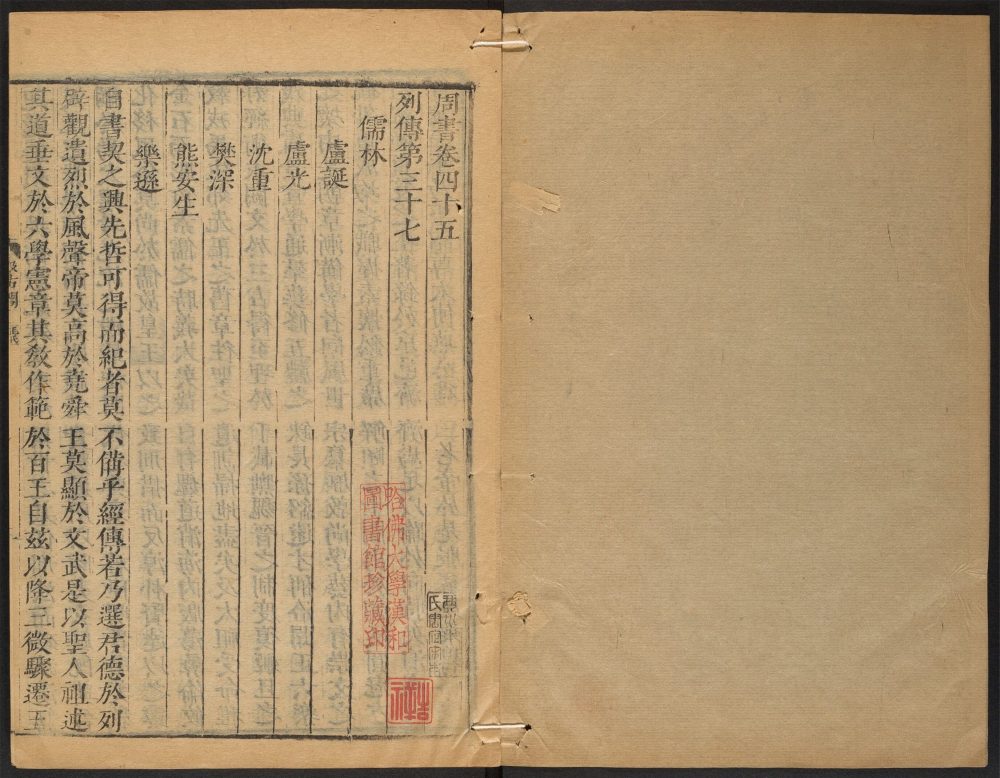 周書卷四十五
列傳第三十七
儒林
盧誕
盧光
沈重
樊深
熊安生
樂遜
自書契之興先哲可得而紀者莫不備乎經傳若乃選君德於列
辟觀遺烈於風聲帝莫高於堯舜王莫顯於文武是以聖人祖述
其道垂文於六學憲章其敎作範於百王自茲以降三微驟遷五
哈佛大學漢和
圖書館珍藏印